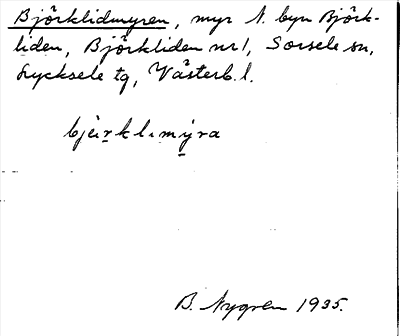 Björklidmyren, myr N. byn Björk-
liden, Björkliden nr 1, Sorsele sn,
Lycksele tg, Västerb. l.
bjèrklımýra
B. Nygren 1935.